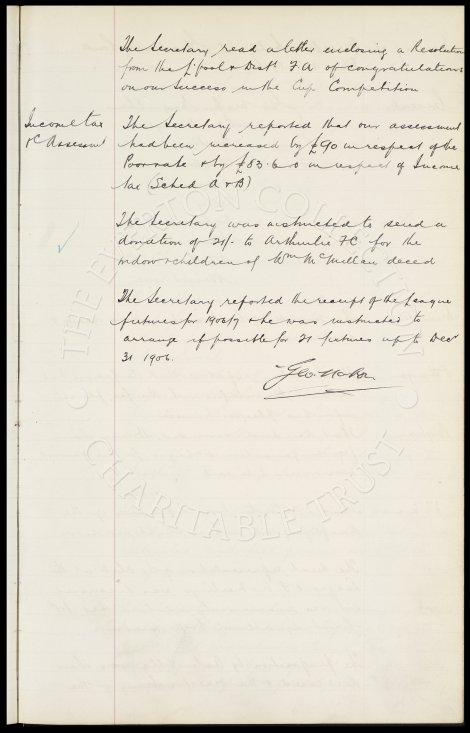 The Secretary read a letter enclosing a Resolution
from the L'pool & Distt. F.A. of congratulations
on our success in the Cup Competition
Income tax
&c Assessmt
The Secretary reported that our assessment
had been increased by £90 in respect of the
Poor rate & by £83.6.0 in respect of Income
tax (Sched A & B)
The Secretary was instructed to send a
donation of 21/- to Arthurlie FC for the
widow & children of Wm McMillan deced
The Secretary reported the receipt of the League
fixtures for 1906/7 & he was instructed to
arrange if possible for 21 fixtures up to Decr
31 1906.
Geo. Mahon
THE EVERTON COLLECTION
CHARITABLE TRUST